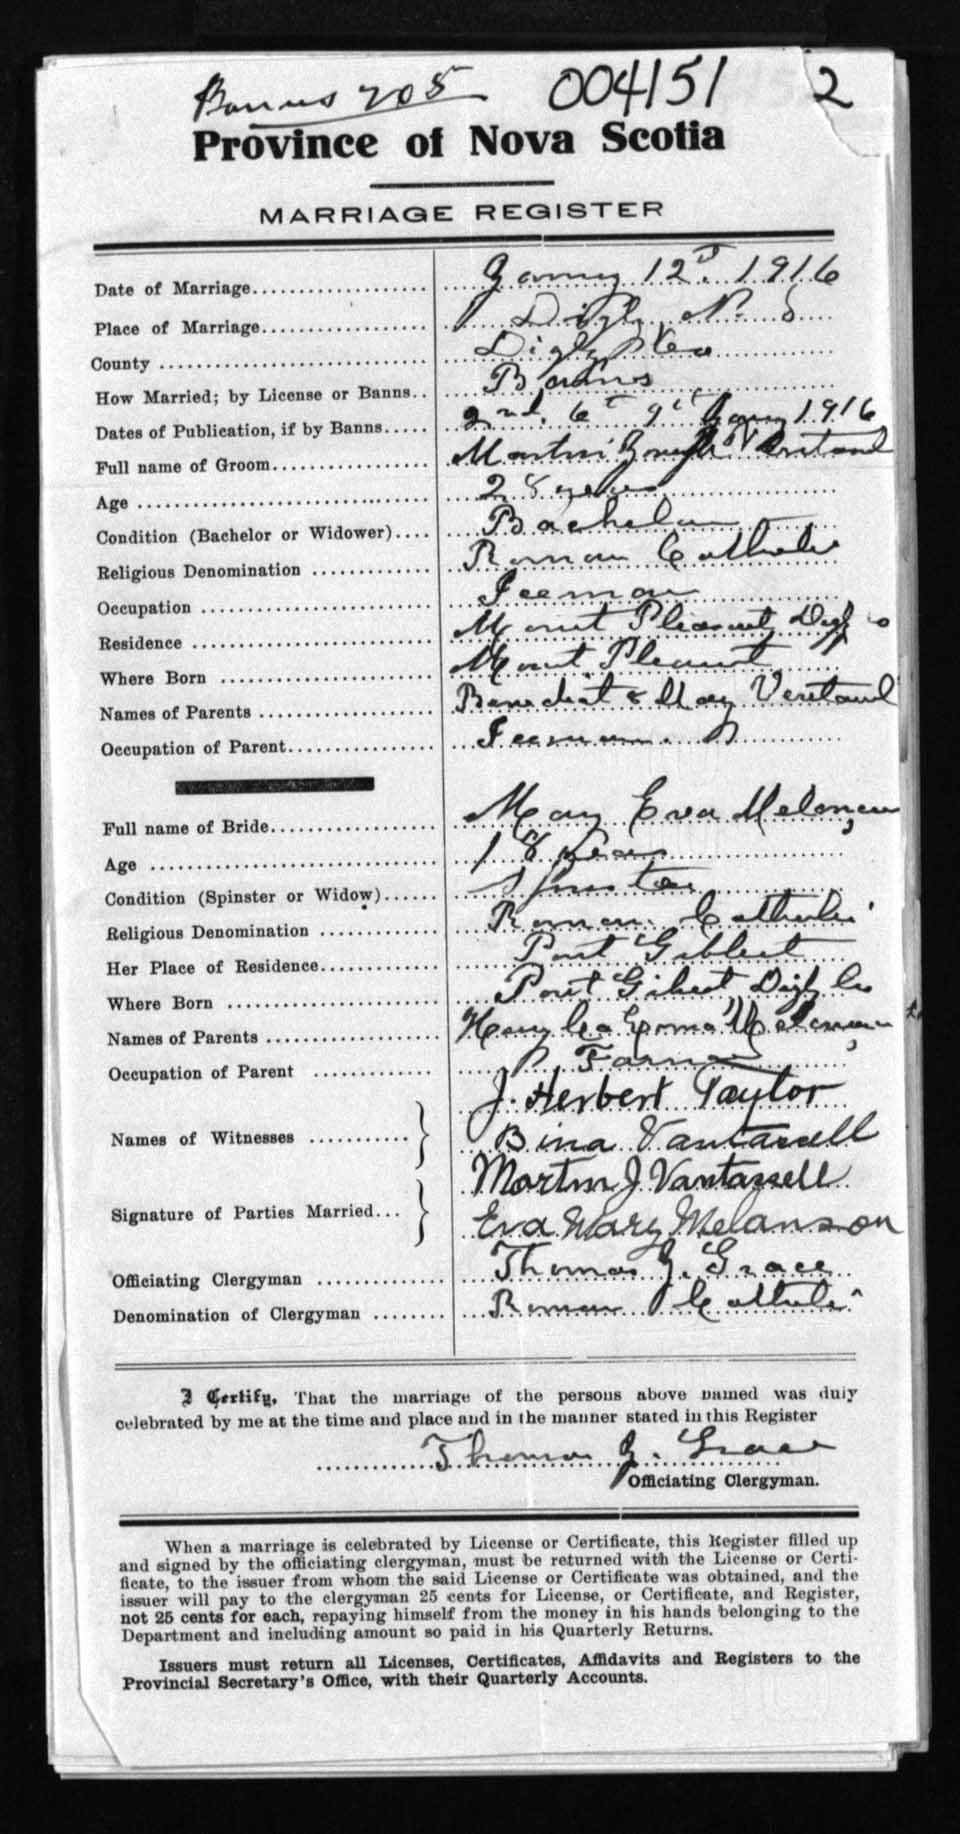 Banns 205 004151 2
Province of Nova Scotia
MARRIAGE REGISTER
Date of Marriage 12th 1916
Place of Marriage Digby N. S
County Digby Co
How Married; by License or Banns Banns
Dates of Publication, if by Banns 2nd. 6th 9th 1916
Full name of Groom Martin Joseph
Age 28 years
Condition (Bachelor or Widower) Bachelor
Religious Denomination Roman Catholic
Occupation
Residence Mount Pleasant Digby Co
Where Born Mount Pleasant
Names of Parents Benedict & May
Occupation of Parent
Full name of Bride May Eva Melanson
Age 18 years
Condition (Spinster or Widow) Spinster
Religious Denomination Roman Catholic
Her Place of Residence Port Gilbert
Where Born Port Gilbert Digby Co
Names of Parents Emma Melanson
Occupation of Parent Farmer
Names of Witnesses J. Herbert Taylor
Bina Vantassell
Signature of Parties Married Martin J Vantassell
Eva Mary Melanson
Officiating Clergyman Thomas J. Grace
Denomination of Clergyman Roman Catholic
I Certify, That the marriage of the persons above named was duly
celebrated by me at the time and place and in the manner stated in this Register
Thomas J. Grace
Officiating Clergyman.
When a marriage is celebrated by License or Certificate, this Register filled up
and signed by the officiating clergyman, must be returned with the License or Certi-
ficate, to the issuer from whom the said License or Certificate was obtained, and the
issuer will pay to the clergyman 25 cents for License, or Certificate, and Register,
not 25 cents for each, repaying himself from the money in his hands belonging to the
Department and including amount so paid in his Quarterly Returns.
Issuers must return all Licenses, Certificates, Affidavits and Registers to the
Provincial Secretary's Office, with their Quarterly Accounts.